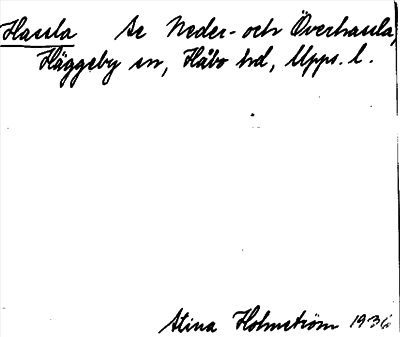 Hassla Se Neder- och Överhassla,
Häggeby sn, Håbo hd, Upps. l.
Stina Holmström 1936